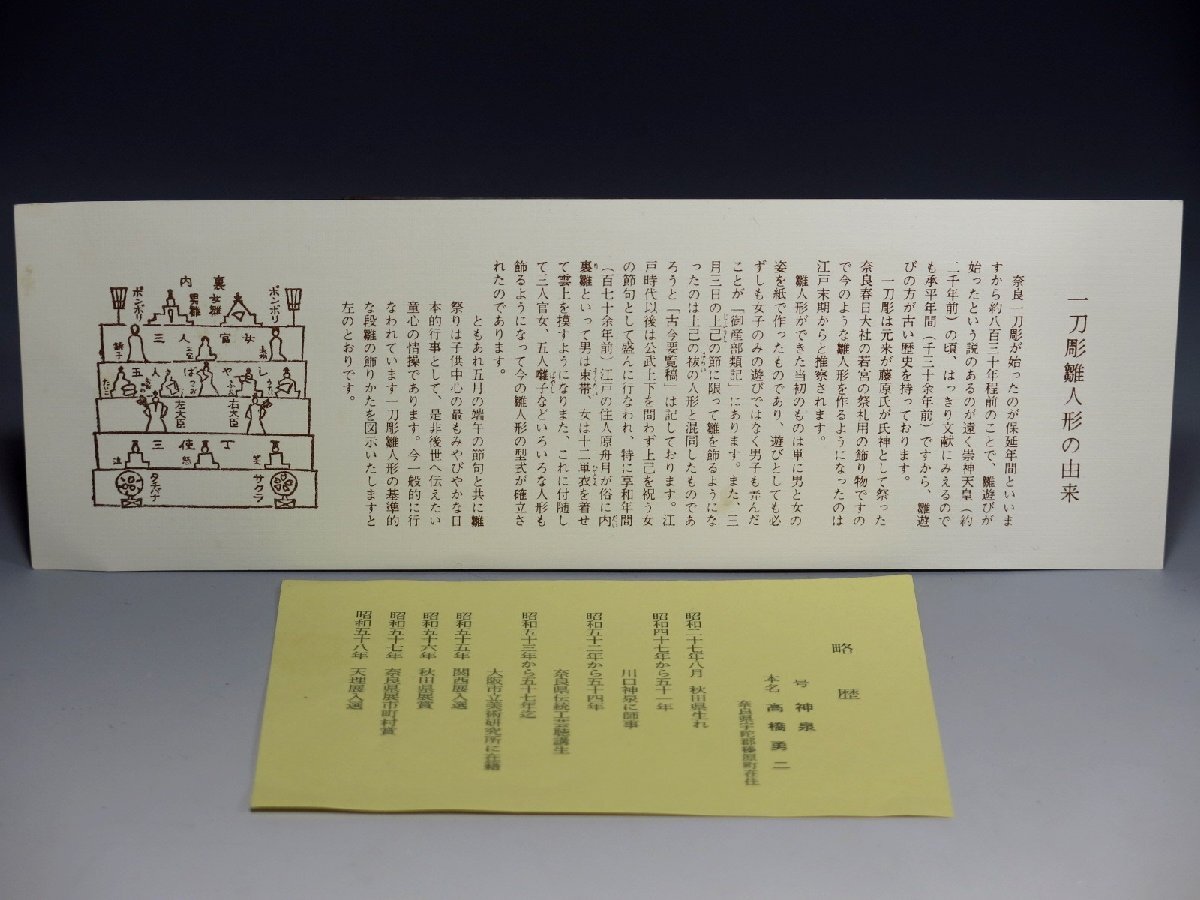 一刀彫雛人形の由来
奈良一刀彫が始ったのが保延年間といいま
すから約八百三十年程前のことで、雛遊びが
始ったという説のあるのが遠く崇神天皇(約
二千年前)の頃、はっきり文献にみえるので
も承平年間(千二十余年前)ですから、雛遊
びの方が古い歴史を持っております。
一刀彫は元来が藤原氏が氏神として祭った
奈良春日大社の若宮の祭礼用の飾り物ですの
で今のような雛人形を作るようになったのは
江戸末期からと推察されます。
雛人形ができた当初のものは単に男と女の
姿を紙で作ったものであり、遊びとしても必
ずしも女子のみの遊びではなく男子も弄んだ
ことが「御産部類記」にあります。また、三
月三日の上巳の節に限って雛を飾るようにな
ったのは上巳の祓の人形と混同したものであ
ろうと「古今要覧稿」は記しております。江
戸時代以後は公武上下を問わず上巳を祝う女
の節句として盛んに行なわれ、特に享和年間
(百七十余年前)江戸の住人原舟月が俗に内
裏雛といって男は束帯、女は十二単衣を着せ
て雲上を摸すようになりまた、これに付随し
て三人官女、五人囃子などいろいろな人形も
飾るようになって今の雛人形の型式が確立さ
れたのであります。
ともあれ五月の端午の節句と共に雛
祭りは子供中心の最もみやびやかな日
本的行事として、是非後世へ伝えたい
童心の情操であります。今一般的に行
なわれています一刀彫雛人形の基準的
な段雛の飾りかたを図示いたしますと
左のとおりです。
内裏
ボンボリ
男雛
女雛
ボンボリ
三人官女
五人ばやし
左大臣
右大臣
三使丁
タチバナ
サクラ
略歴
号 神泉
本名 高橋勇二
奈良県宇陀郡榛原町在住
昭和二十七年八月 秋田県生れ
昭和四十七年から五十一年
川口神泉に師事
昭和五十二年から五十四年
奈良県伝統工芸聴講生
昭和五十三年から五十七年迄
大阪市立美術研究所に在籍
昭和五十五年 関西展入選
昭和五十六年 秋田県展賞
昭和五十七年 奈良県展市町村賞
昭和五十八年 天理展入選